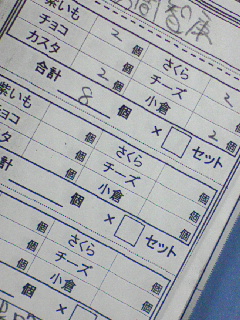 紫いも 個 さくら
チョコ 2 個 チーズ 2
カスタ 2 個 小倉 2 個
合計 8 個 × セット
紫いも 個 さくら 個
チョコ 個 チーズ 個
カスタ 個 小倉 個
計 個 × セット
個 さくら 個
個 チーズ 個
個 小倉 個
個 ×